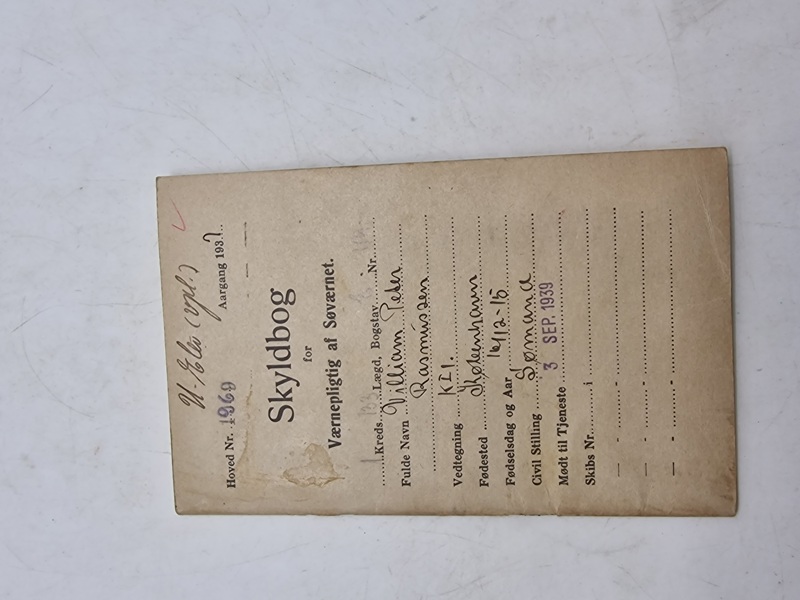 U-Elev (vpl.)
Hoved Nr. 1969 Aargang 1937.
Skyldbog
for
Værnepligtig af Søværnet.
1 Kreds 103 Lægd, Bogstav Nr.
Fulde Navn Villiam Peter
Rasmussen
Vedtegning K21.
Fødested København
Fødselsdag og Aar 16/12-15
Civil Stilling Sømand
Mødt til Tjeneste 3 SEP. 1939
Skibs Nr. i
— - -
— - -
— - -